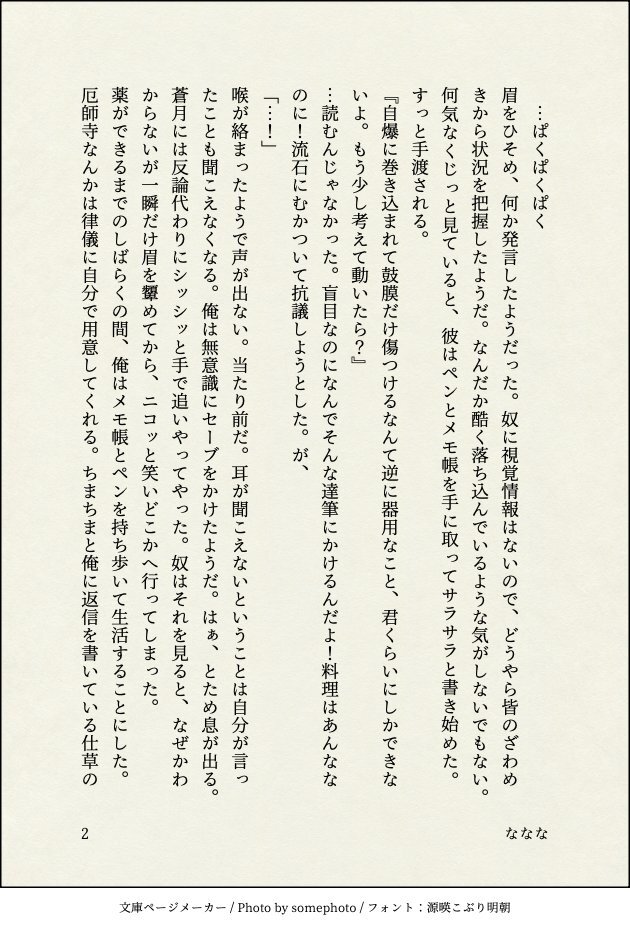 …ぱくぱくぱく
眉をひそめ、何か発言したようだった。奴に視覚情報はないので、どうやら皆のざわめ
きから状況を把握したようだ。なんだか酷く落ち込んでいるような気がしないでもない。
何気なくじっと見ていると、彼はペンとメモ帳を手に取ってサラサラと書き始めた。
すっと手渡される。
『自爆に巻き込まれて鼓膜だけ傷つけるなんて逆に器用なこと、君くらいにしかできな
いよ。もう少し考えて動いたら？』
…読むんじゃなかった。盲目なのになんでそんな達筆にかけるんだよ！料理はあんなな
のに！流石にむかついて抗議しようとした。が、
「…！」
喉が絡まったようで声が出ない。当たり前だ。耳が聞こえないということは自分が言っ
たことも聞こえなくなる。俺は無意識にセーブをかけたようだ。はぁ、とため息が出る。
蒼月には反論代わりにシッシッと手で追いやってやった。奴はそれを見ると、なぜかわ
からないが一瞬だけ眉を顰めてから、ニコッと笑いどこかへ行ってしまった。
薬ができるまでのしばらくの間、俺はメモ帳とペンを持ち歩いて生活することにした。
厄師寺なんかは律儀に自分で用意してくれる。ちまちまと俺に返信を書いている仕草の
ななな
2
文庫ページメーカー / Photo by somephoto / フォント：源暎こぶり明朝